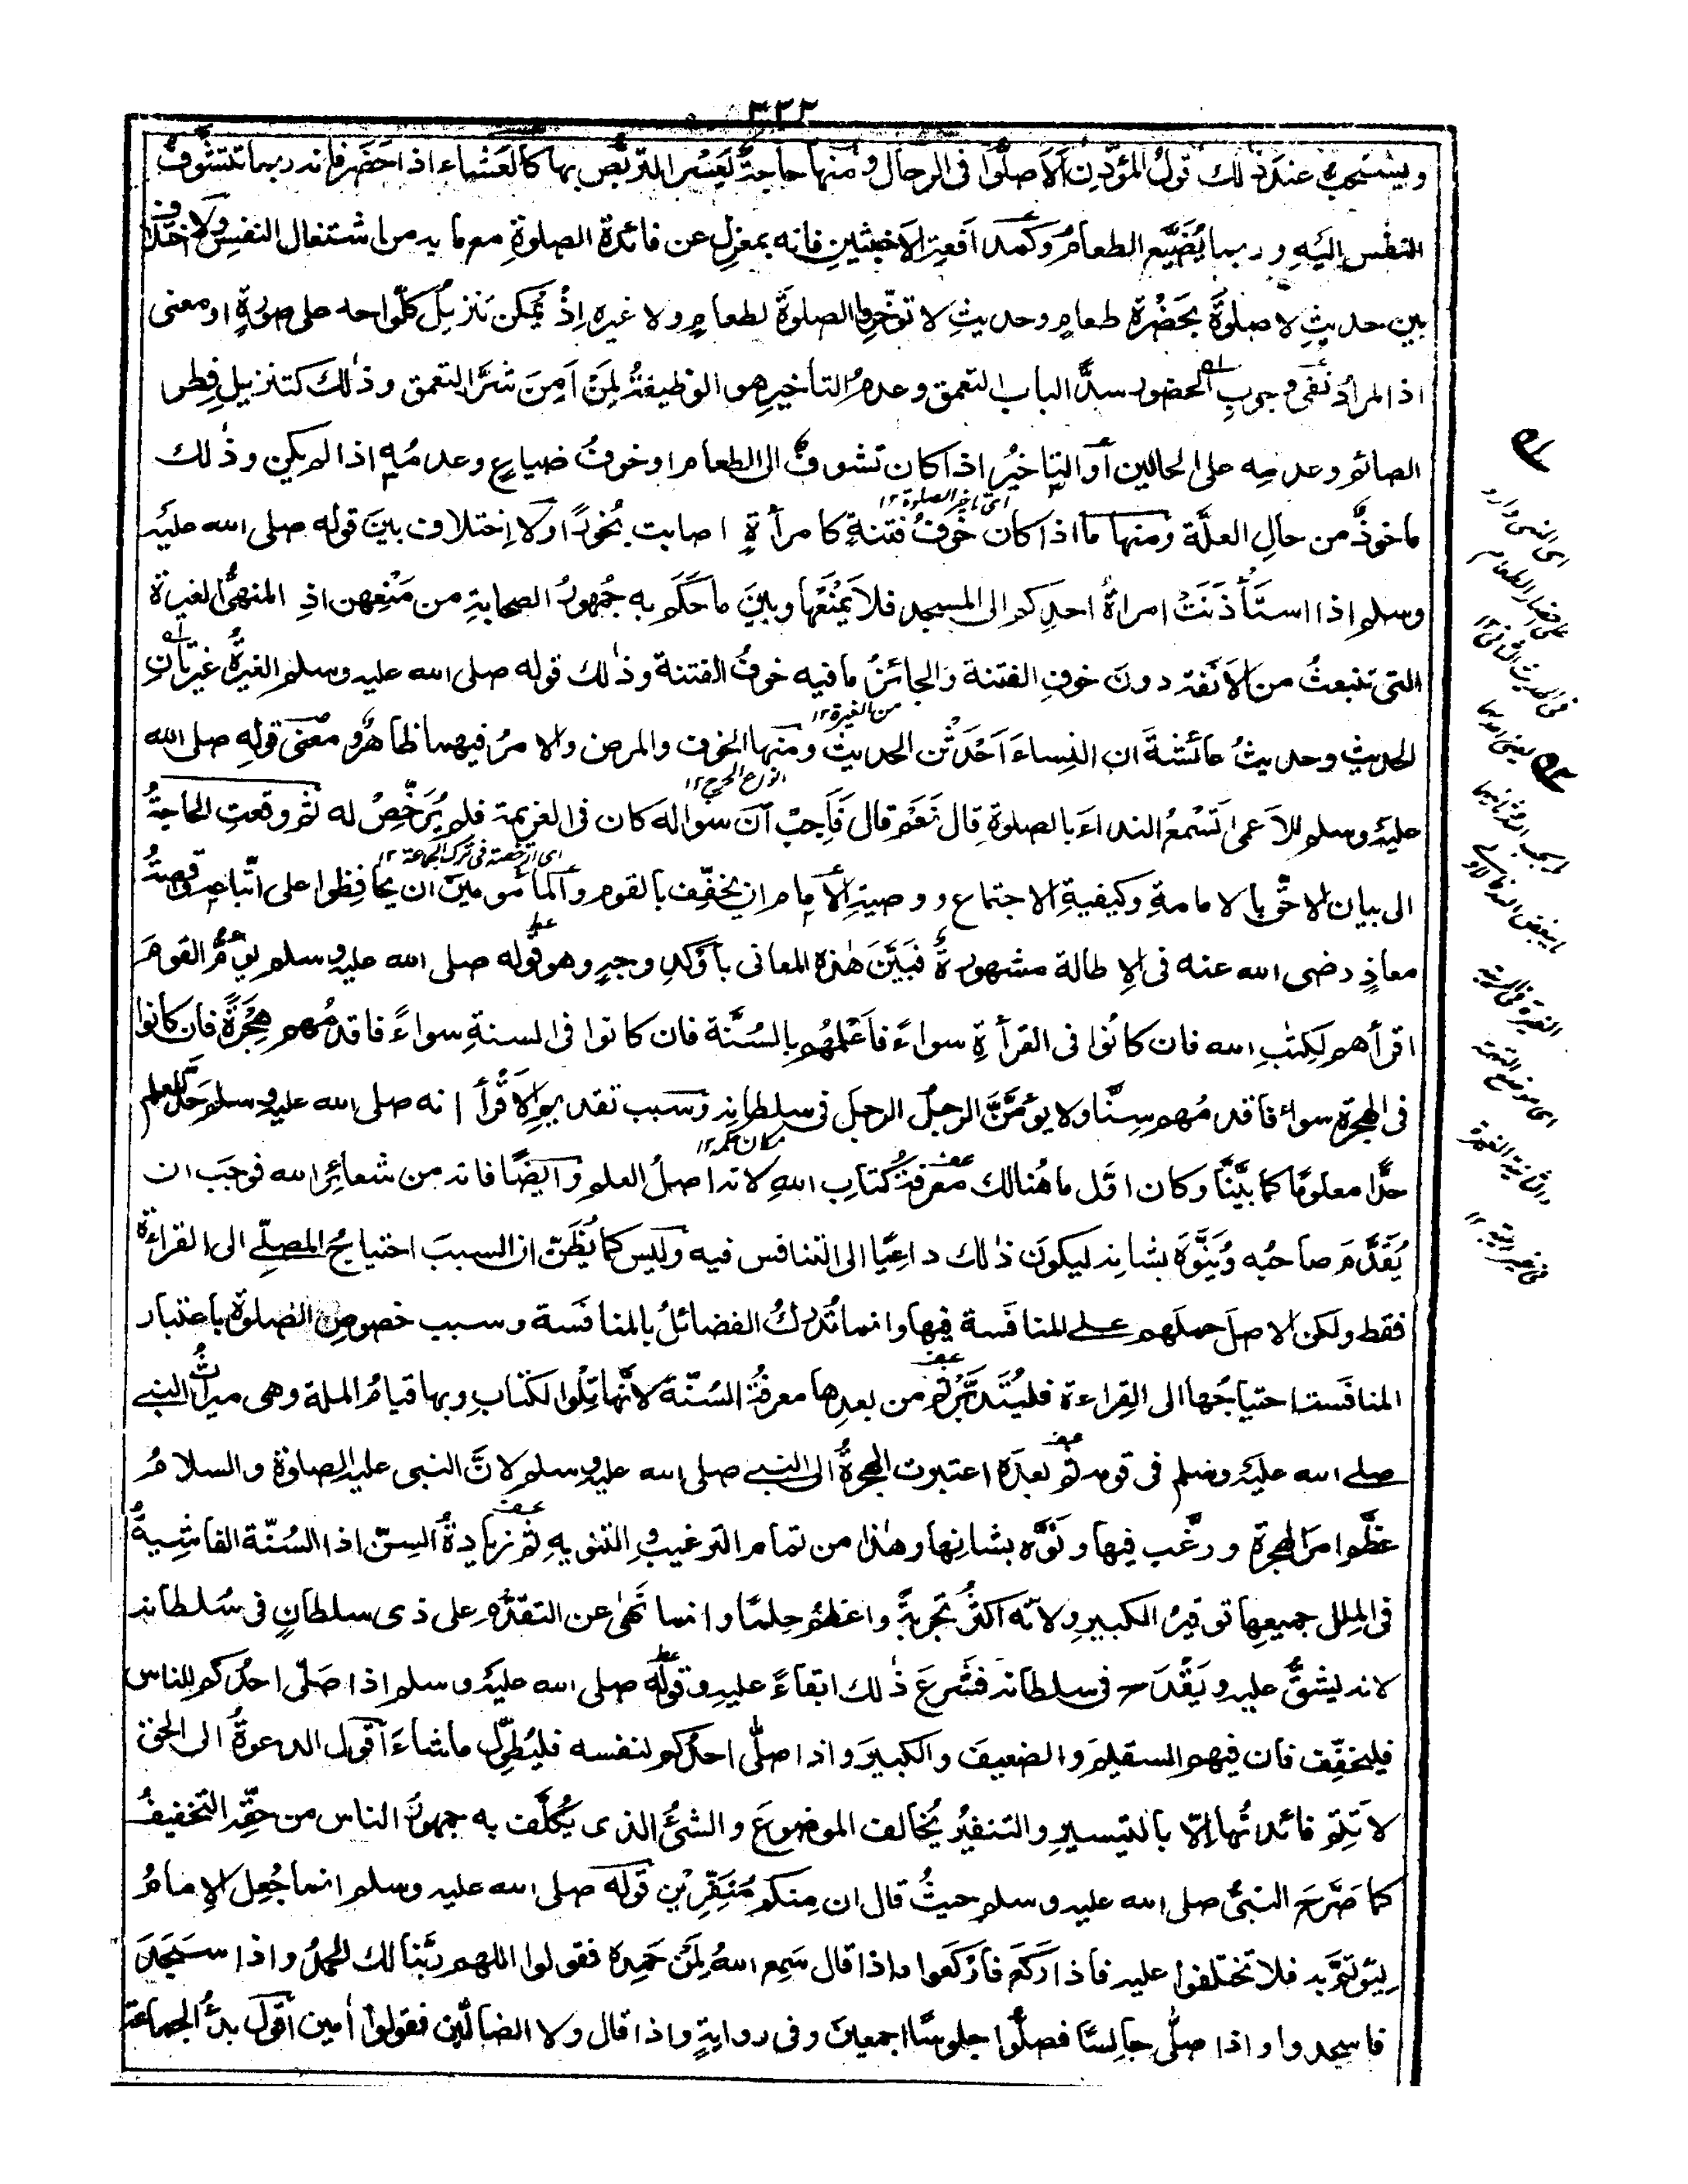 ٣٢٢
ويستحب عند ذلك قولُ المؤذن اَلَا صلُّوا فى الرحال ومنها حاجةٌ يَعسُر التربُّص بها كالعَشاء اذا حَضَر فانه ربما تتشوفُ
النفْس اليَهِ وربما يُضَيَّع الطعامُ وكمدافَعةِ الاَخبثينِ فانه بمعزلٍ عن فائدة الصلوةِ مع ما به من اشتغال النفسِ ولا اختلافَ
بين حديثِ لا صلوٰةَ بحَضْرة طعامٍ وحديثِ لا تؤخّروا الصلوةَ لطعامٍ ولا غيره اِذْ يُمكن تنزيلُ كلِّ واحد على صورةٍ او معنى
اذ المرادُ نفىُ وجوبِ الحضور سدًّا لباب التعمق وعدمُ التأخيرِ هو الوظيفةُ لِمَنْ اَمِنَ شرَّ التعمق وذٰلك كتنزيلِ فِطر
الصائم وعدمِه على الحالين اَو التاخيرُ اذا كان تشوفٌ الى الطعام او خوفُ ضياعٍ وعدمُه اذا لم يكن وذٰلك
اى تاخير الصلوة ١٢
ماخوذٌ من حالِ العلَّة ومنها ما اذا كان خوفُ فتنةٍ كامرأةٍ اصابت بُخورًا ولا اِختلافَ بينَ قوله صلى الله عليه
وسلم اذا استَأذَنَتْ امرأةُ احدِكم الى المسجد فلا يَمْنَعْها وبين ما حَكَم به جُمهورُ الصحابةِ من مَنْعِهن اذِ المنهىُّ الغيرةُ
التى تنبعثُ من الاَنَفَة دونَ خوفِ الفتنة والجائزُ ما فيه خوفُ الفتنة وذٰلك قوله صلى الله عليه وسلم الغيرةُ غيرتان
من الغيرة ١٢
الحديث وحديثُ عائشةَ ان النِساءَ اَحْدَثْن الحديثَ ومنها الخوف والمرض والامرُ فيهما ظاهرٌ ومعنى قولِه صلى الله
انواع الحرج ١٢
عليه وسلم للاَعمىٰ اَتَسْمعُ النداءَ بالصلوةِ قال نَعَمْ قال فَاَجِبْ اَنَّ سواله كان فى العزيمة فلم يُرَخِّصْ له ثم وقعتِ الحاجةُ
اى الرخصة فى ترك الجماعة ١٢
الى بيان الاحقِّ بالامامةِ وكيفيةِ الاجتماع ووصيةِ الاِمام ان يخفِّف بالقوم والمأمومين ان يحافِظوا على اتّباعه وقصةُ
معاذٍ رضى الله عنه فى الاِطالة مشهورةٌ فبَيَّنَ هٰذه المعانى بأوكدِ وجهٍ وهو قوله صلى الله عليه وسلم يؤمُّ القومَ
اقرأهم لِكِتٰبِ الله فان كانُوا فى القرأةِ سواءً فاَعْلمُهم بالسُّنَّة فان كانوا فى السنةِ سواءً فاقدمُهم هِجْرَةً فان كانوا
فى الهجرة سواءً فاقدمُهم سِنًّا ولا يؤمَّنَّ الرجلُ الرجلَ فى سلطانه وسبب تقديم الاَقْرأ انه صلى الله عليه وسلم حَدَّ للعلم
مكان حكمه ١٢
حدًّا معلومًا كما بيَّنَّا وكان اوّل ما هُنالك معرفةُ كتابِ اللهِ لانه اصلُ العلم وايضًا فانه من شعائرِ الله فوجَب ان
يُقَدَّمَ صاحبُه ويُنَوَّهَ بشانه ليكونَ ذٰلك داعيًا الى التنافس فيه وليس كما يُظَنّ ان السببَ احتياجُ المصلّے الى القراءة
فقط ولكن الاصلَ حملُهم علے المنافَسة فيها وانما تُدرك الفضائلُ بالمنافَسة وسبب خصوصِ الصلوة باعتبار
المنافَسة احتياجُها الى القِراءة فليُتَدبَّر ثم من بعدِها معرفةُ السُنّة لانَّها تِلْوُ الكتابِ وبها قيامُ الملة وهى ميراثُ النبے
صلے الله عليه وسلم فى قومه ثم بعدَه اعتبرت الهجرةُ الى النبے صلى الله عليه وسلم لانَّ النبى عليه الصلوٰة والسلامُ
عَظَّم امرَ الهجرة ورغَّب فيها ونَوَّه بشانِها وهٰذا من تمام الترغيب والتنويهِ ثم زيادةُ السِنّ اذ السُنّة الفاشيةُ
فى المِلل جميعِها توقيرُ الكبير ولانّه اكثرُ تَجربةً واعظمُ حِلمًا وانما نَهىٰ عن التقدُّم على ذى سلطانٍ فى سُلطانه
لانه يشقُّ عليه ويَقْدَح فى سلطانه فشَرعَ ذٰلك ابقاءً عليه وقولُه صلى الله عليه وسلم اذا صَلّى احدُكم للناس
فليخفِّف فان فيهم السقيمَ والضعيفَ والكبيرَ واذا صلّٰى احدُكم لنفسه فليُطوِّل ما شاءَ اَقول الدعوةُ الى الحق
لا تَتِمُّ فائدتُها اِلّا بالتيسيرِ والتنفيرُ يُخالف الموضوعَ والشئُ الذى يُكلَّف به جمهورُ الناس من حقِّه التخفيفُ
كما صَرَّحَ النبىُّ صلى الله عليه وسلم حيثُ قال ان مِنكم مُنَفِّرِيْن قوله صلى الله عليه وسلم انما جُعِل الاِمامُ
لِيؤتَمَّ به فلا تختلفوا عليه فاذا رَكَع فاَرْكَعوا واذا قال سَمِع اللهُ لِمَن حَمِدَه فقولوا اللهم ربَّنا لك الحمدُ واذا سَجَدَ
فاسجدوا واذا صلّٰى جالسًا فصلُّوا جلوسًا اجمعين وفى روايةٍ واذا قال ولا الضالّين فقولوا اٰمين اَقول بدءُ الجماعة